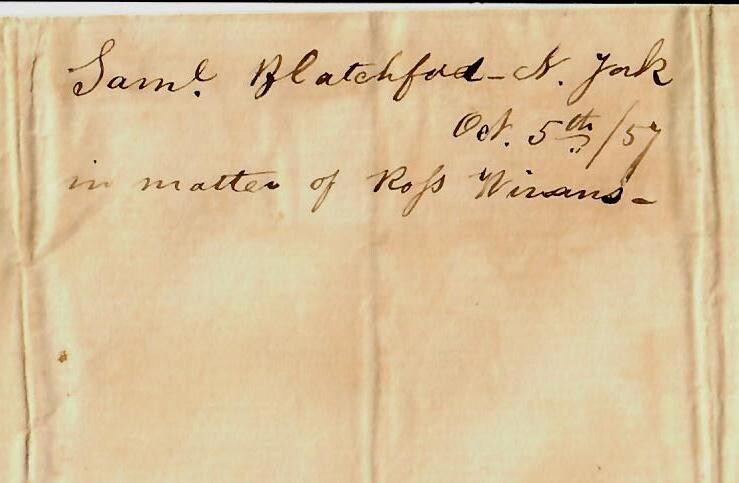 Saml. Blatchford - N. York
Oct. 5th/57
in matter of Ross Winans -